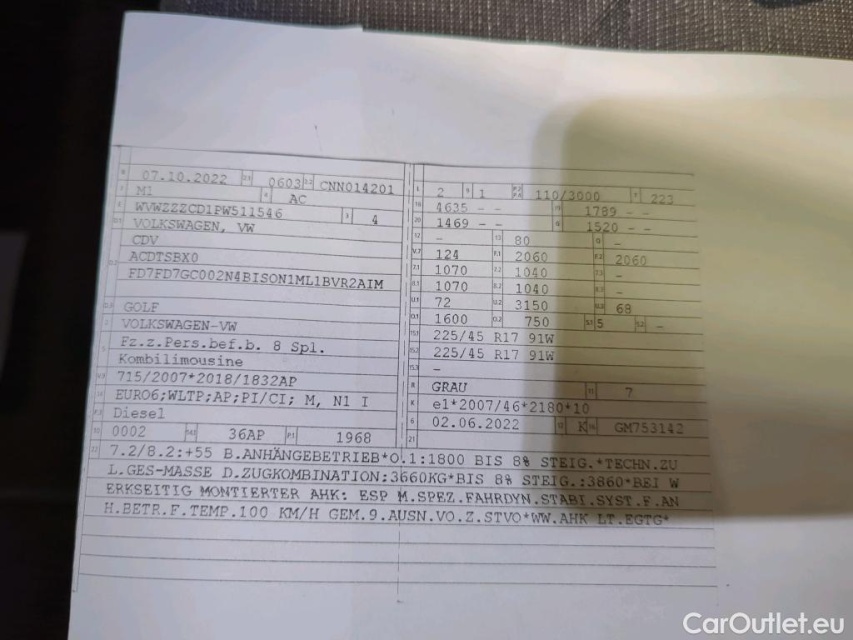 07.10.2022 0603 CNN014201
M1 AC
WVWZZZCD1PW511546 4
VOLKSWAGEN, VW
CDV
ACDTSBX0
FD7FD7GC002N4BISON1ML1BVR2AIM
GOLF
VOLKSWAGEN-VW
Fz.z.Pers.bef.b. 8 Spl.
Kombilimousine
715/2007*2018/1832AP
EURO6;WLTP;AP;PI/CI; M, N1 I
Diesel
0002 36AP 1968
2 1 110/3000 223
4635 - - 1789 - -
1469 - - 1520 - -
- 80 -
124 2060 2060
1070 1040 -
1070 1040 -
72 3150 68
1600 750 5 -
225/45 R17 91W
225/45 R17 91W
-
GRAU 7
e1*2007/46*2180*10
02.06.2022 K GM753142
7.2/8.2:+55 B.ANHÄNGEBETRIEB*O.1:1800 BIS 8% STEIG.*TECHN.ZU
L.GES-MASSE D.ZUGKOMBINATION:3660KG*BIS 8% STEIG.:3860*BEI W
ERKSEITIG MONTIERTER AHK: ESP M.SPEZ.FAHRDYN.STABI.SYST.F.AN
H.BETR.F.TEMP.100 KM/H GEM.9.AUSN.VO.Z.STVO*WW.AHK LT.EGTG*
CarOutlet.eu